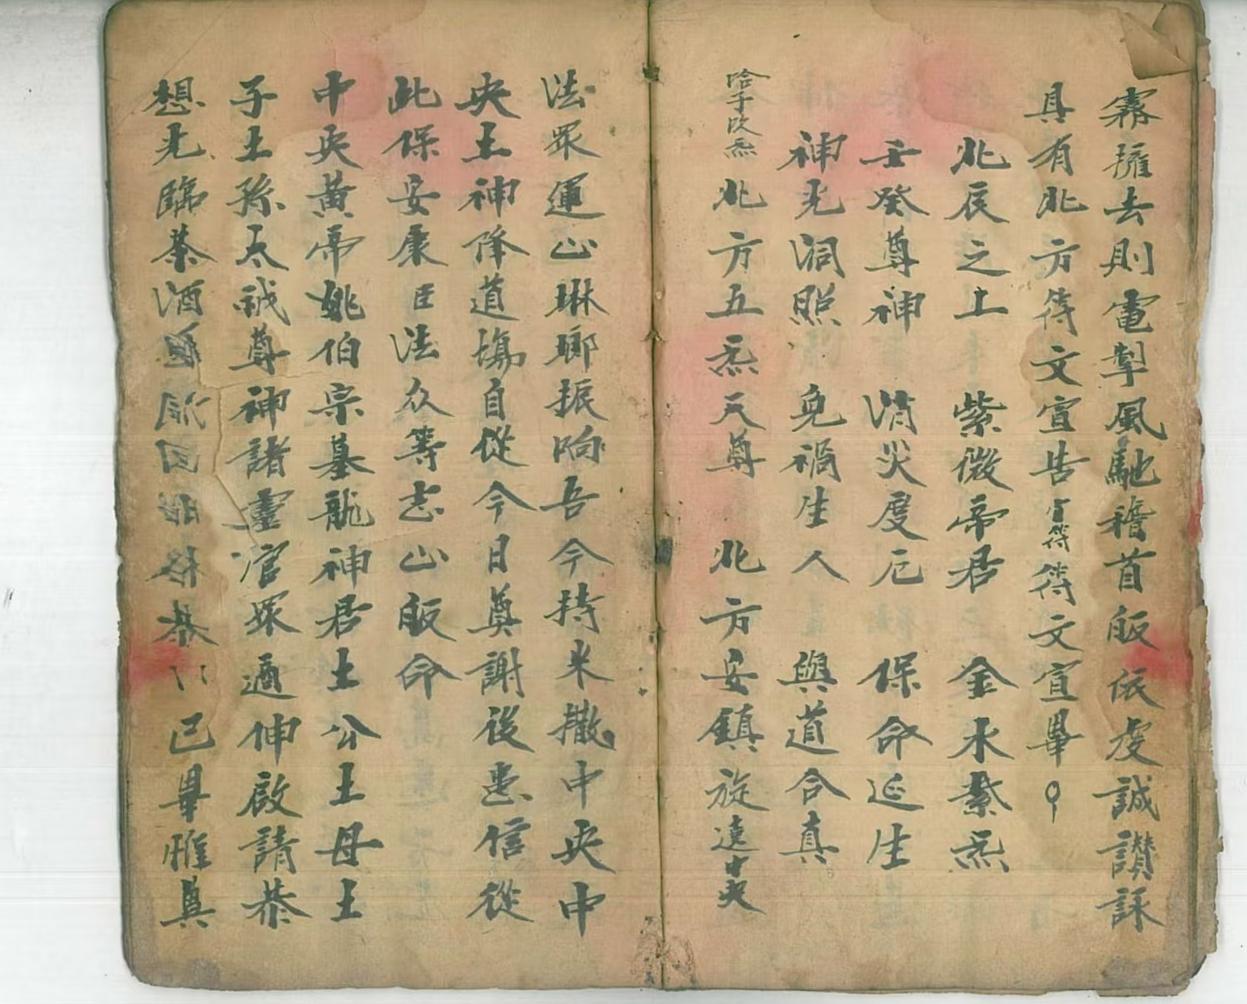 霧擁去則電掣風馳稽首皈依虔誠讚詠
具有北方符文宣告 符文宣畢
北辰之上 紫微帝君 金水紫炁
壬癸尊神 消災度厄 保命延生
神光洞照 免禍生人 與道合真
北方五炁天尊 北方安鎮旋遶中央
法眾運心琳瑯振响吾今持米撒中央中
央土神降道塲自從今日奠謝後惠信從
此保安康臣法众等志心皈命
中央黃帝姚伯宗墓龍神君土公土母土
子土孫太誠尊神諸靈官眾適伸啟請恭
想光臨茶酒 已畢雅奠